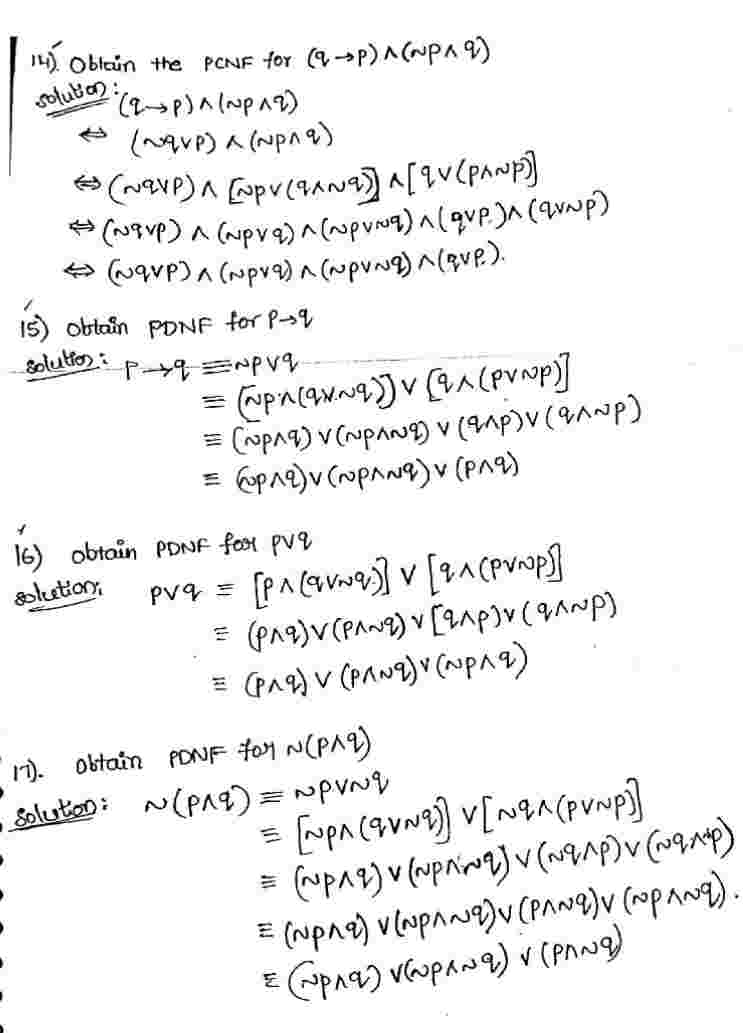 14). Obtain the PCNF for (q→p)∧(~p∧q)
solution: (q→p)∧(~p∧q)
⇔ (~q∨p)∧(~p∧q)
⇔ (~q∨p)∧[~p∨(q∧~q)]∧[q∨(p∧~p)]
⇔ (~q∨p)∧(~p∨q)∧(~p∨~q)∧(q∨p)∧(q∨~p)
⇔ (~q∨p)∧(~p∨q)∧(~p∨~q)∧(q∨p).
15) obtain PDNF for p→q
solution: p→q ≡ ~p∨q
≡ [~p∧(q∨~q)]∨[q∧(p∨~p)]
≡ (~p∧q)∨(~p∧~q)∨(q∧p)∨(q∧~p)
≡ (~p∧q)∨(~p∧~q)∨(p∧q)
16) obtain PDNF for p∨q
solution: p∨q ≡ [p∧(q∨~q)]∨[q∧(p∨~p)]
≡ (p∧q)∨(p∧~q)∨[q∧p)∨(q∧~p)
≡ (p∧q)∨(p∧~q)∨(~p∧q)
17). obtain PDNF for ~(p∧q)
solution: ~(p∧q) ≡ ~p∨~q
≡ [~p∧(q∨~q)]∨[~q∧(p∨~p)]
≡ (~p∧q)∨(~p∧~q)∨(~q∧p)∨(~q∧~p)
≡ (~p∧q)∨(~p∧~q)∨(p∧~q)∨(~p∧~q).
≡ (~p∧q)∨(~p∧~q)∨(p∧~q)